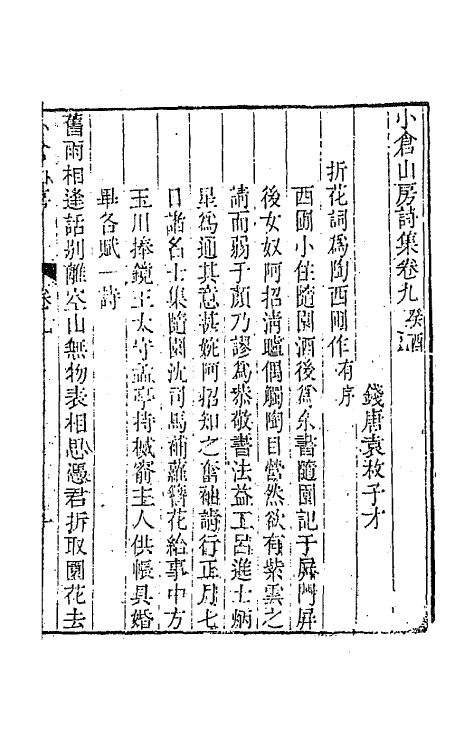 小倉山房詩集卷九 癸酉
錢唐袁枚子才
折花詞爲陶西圃作有序
西圃小住隨園酒後爲余書隨園記于屏門屏
後女奴阿招淸矑偶觸陶目營然欲有紫雲之
請而弱于顏乃謬爲恭敬書法益工呂進士炳
星爲通其意甚婉阿招知之奮袖請行正月七
日諸名士集隨園沈司馬補蘿簪花給事中方
玉川捧鏡王太守孟亭持槭窬主人供帳具婚
畢各賦一詩
舊雨相逢話別離空山無物表相思憑君折取園花去